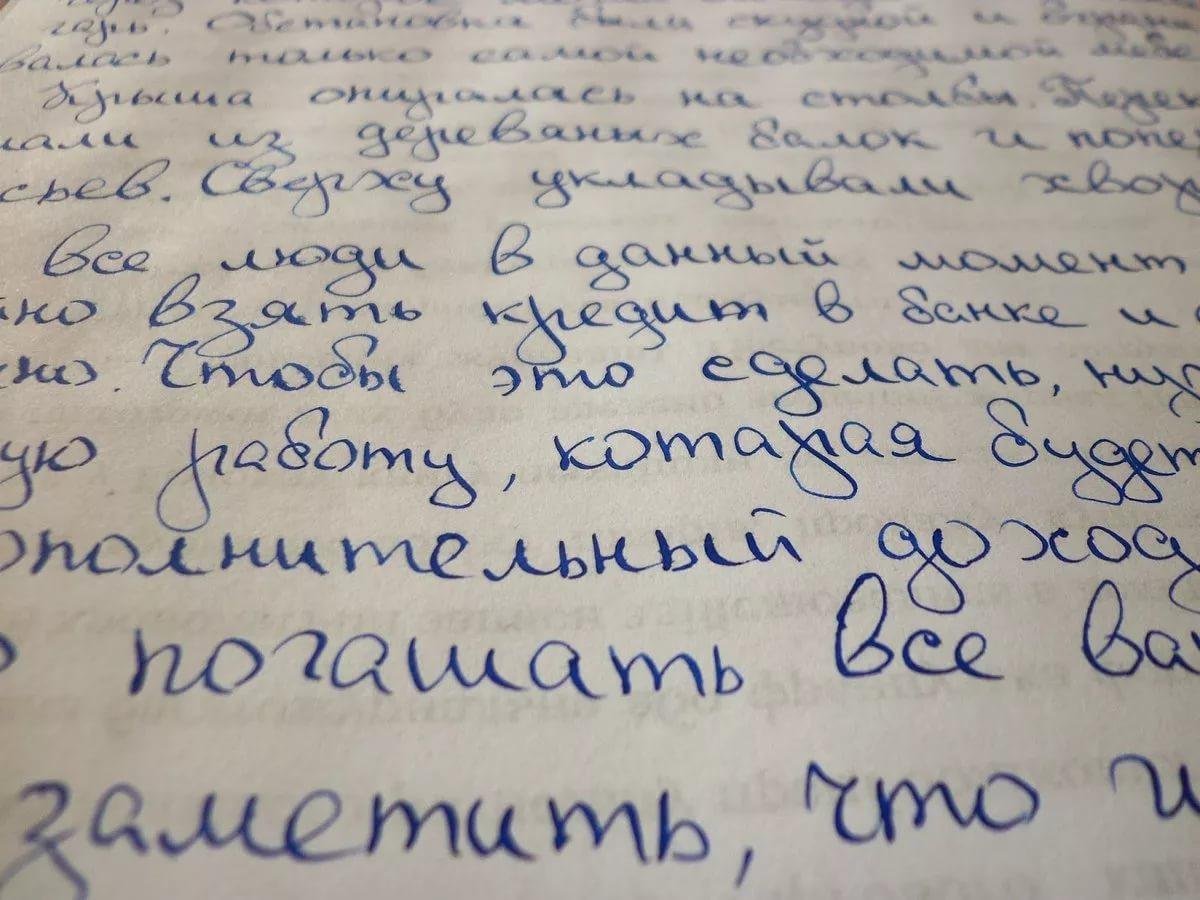 гарь. Обстановка были скудной и ограни
валась только самой необходимой мебе
Крыша опиралась на столбы. Перек
лали из дереваных балок и попе
сьев. Сверху укладывали хвоу
Все люди в данный момент
но взять кредит в банке и
Чтобы это сделать, нуж
ую работу, которая будет
ополнительный доход
о погашать все ва
заметить, что и